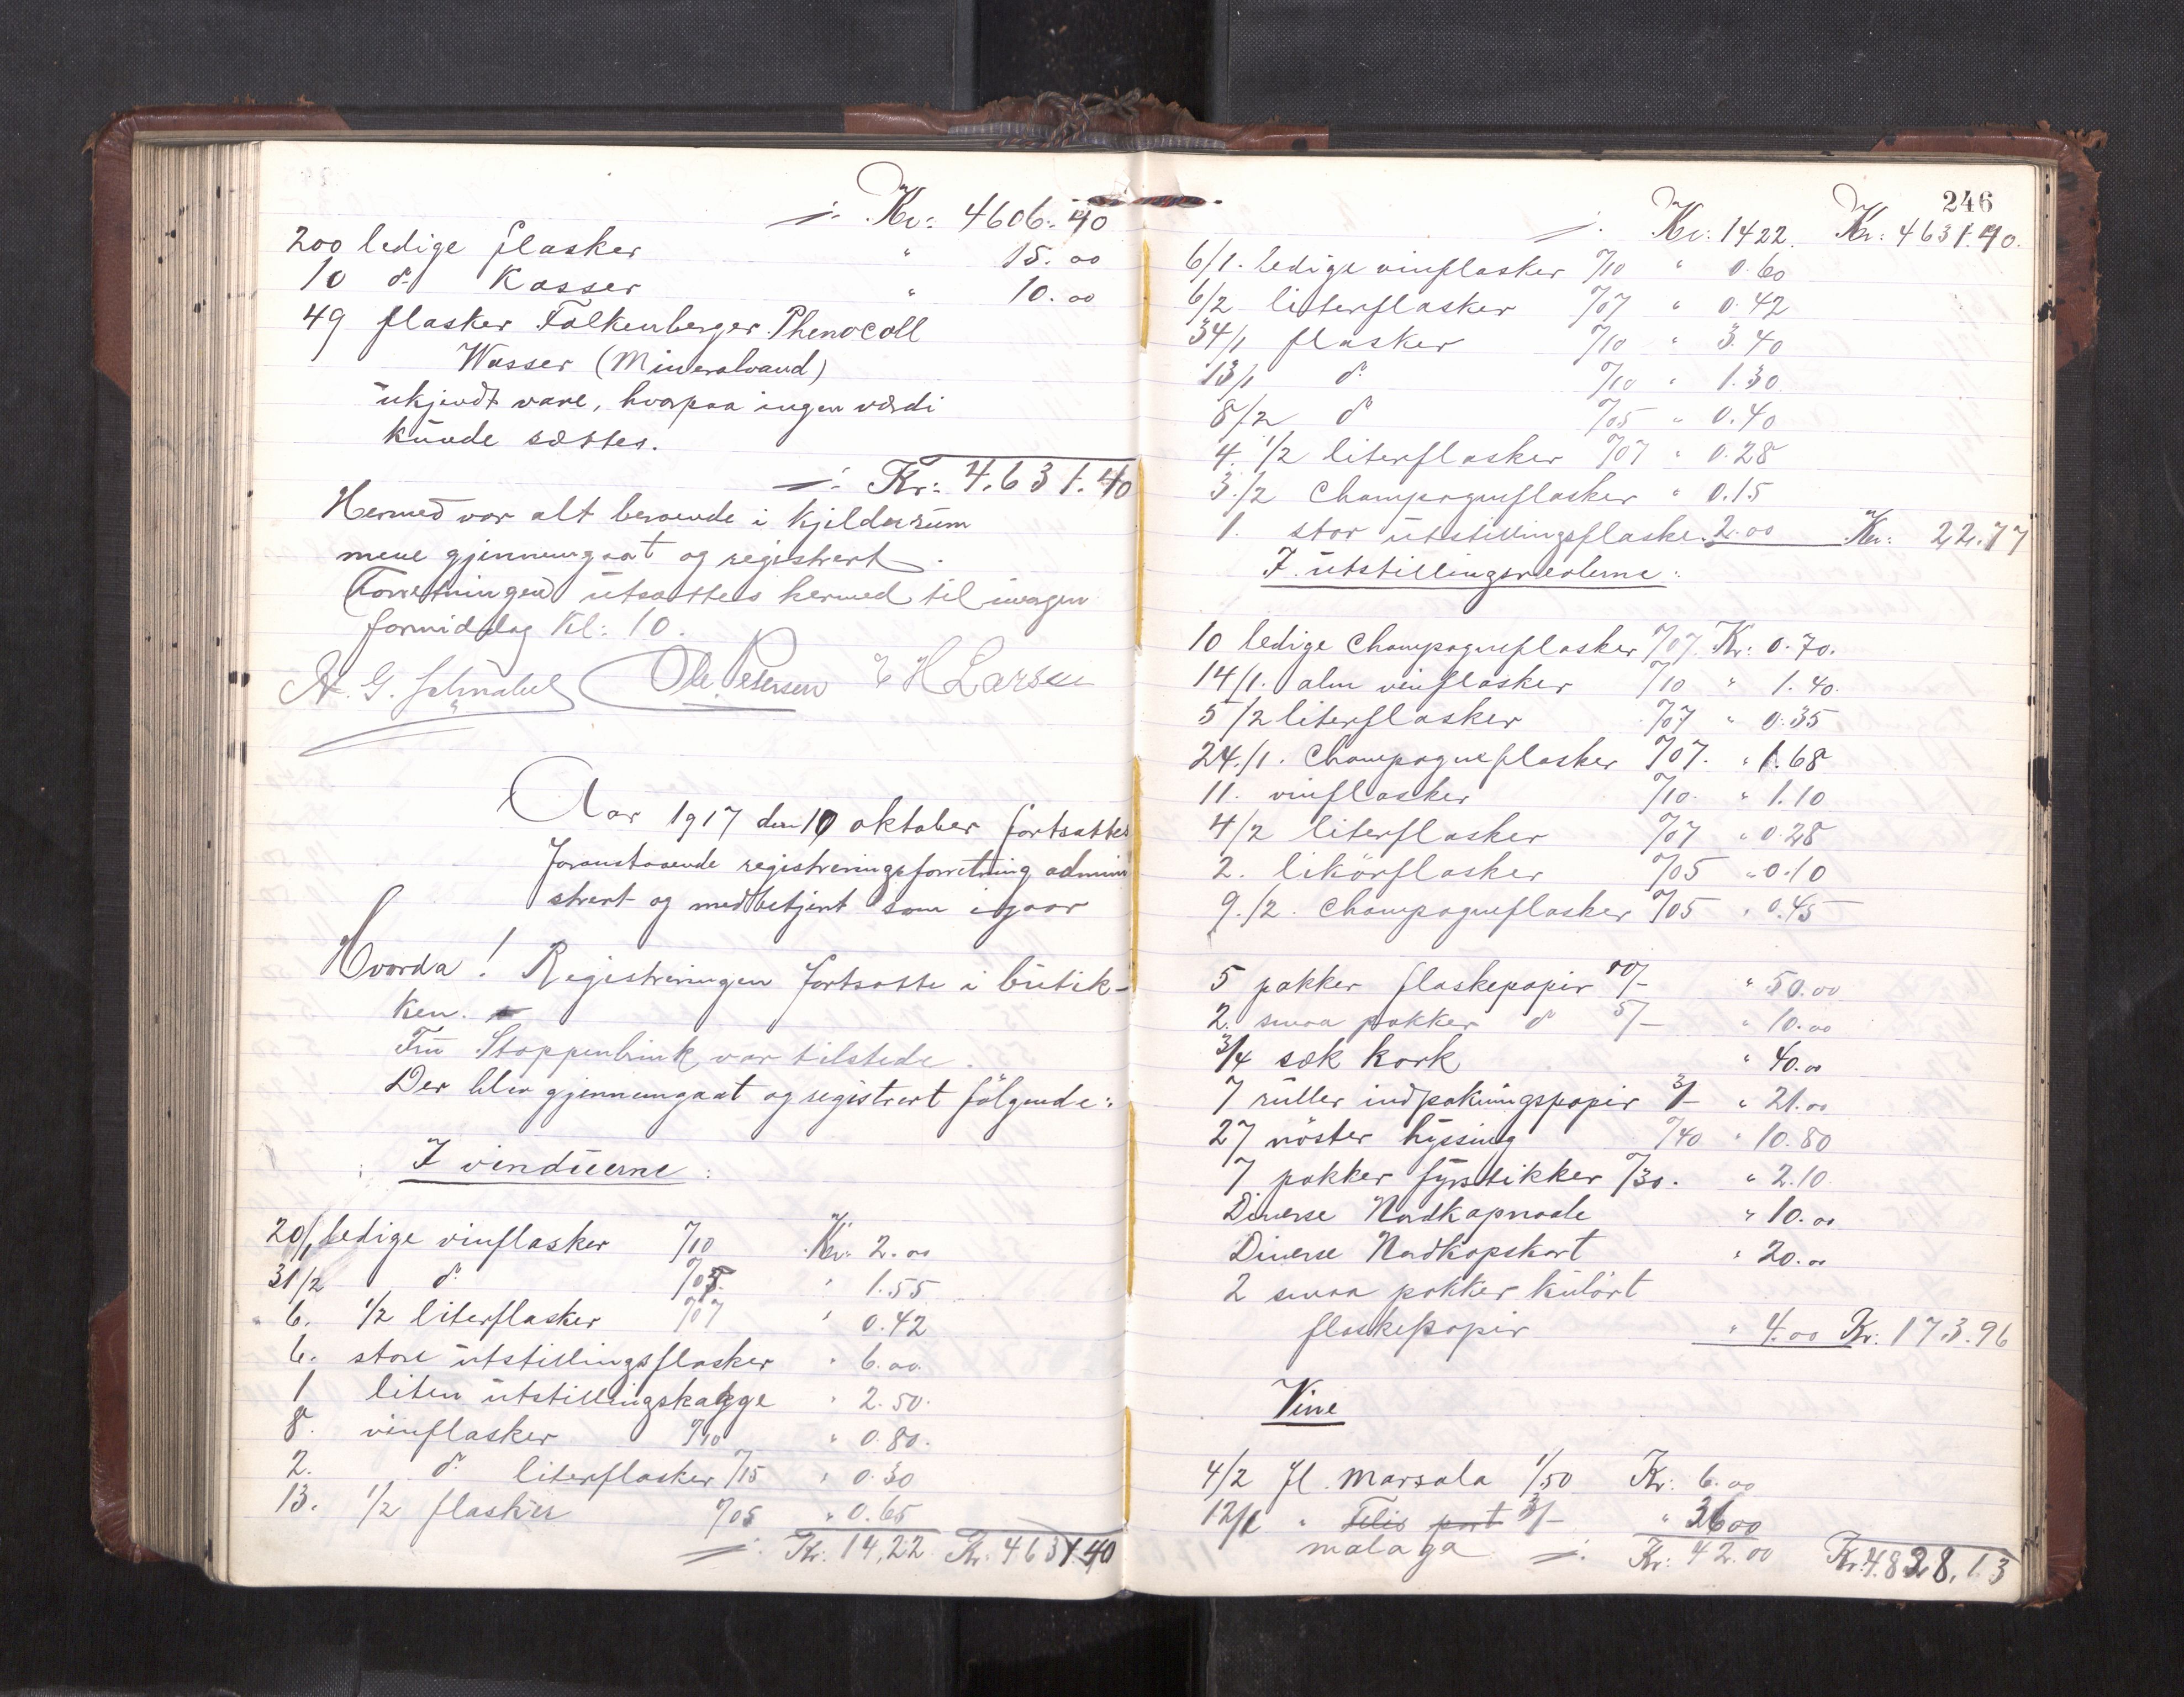 ⸗/. Kr: 4606.40
200 ledige flasker " 15.00
10 do Kasser " 10.00
49 flasker Falkenberger Phenocoll
Wasser (Mineralvand)
ukjendt vare, hvorpaa ingen værdi
kunde sættes.
⸗/. Kr: 4.631.40
Hermed var alt beroende i Kjelderrum
mene gjennemgaat og registrert.
Forretningen utsattes hermed til imorgen
formiddag Kl: 10.
A. G. Schnabel Ole Petersen E H Larsen
Aar 1917 den 10 oktober fortsattes
foranstaaende registreringsforretning admini
strert og medbetjent som igaar
Hvorda! Registreringen fortsatte i butik-
ken.
Fru Stoppenbrink var tilstede.
Der blev gjennemgaat og registrert følgende:
I vinduerne:
20/1 ledige vinflasker º/10 Kr: 2.00
31/2 do º/05 " 1.55
6. 1/2 literflasker º/07 " 0.42
6. store utstillingsflasker " 6.00
1 liten utstillingskagge " 2.50
8. vinflasker º/10 " 0.80
2. do literflasker º/15 " 0.30
13. 1/2 flasker º/05 " 0.65
⸗/. Kr: 14,22 Kr. 4631.40
246
⸗/. Kr: 1422. Kr: 4631.40.
6/1. ledige vinflasker º/10 " 0.60
6/2 literflasker º/07 " 0.42
34/1 flasker º/10 " 3.40
13/1 do º/10 " 1.30
8/2 do º/05 " 0.40
4. 1/2 literflasker º/07 " 0.28
3./2 Champagneflasker " 0.15
1. stor utstillingsflaske. 2.00 Kr: 22.77
I utstillingsreolerne:
10 ledige Champagneflasker º/07. Kr: 0.70.
14/1. alm vinflasker º/10 " 1.40.
5/2 literflasker º/07 " 0.35
24./1. Champagneflasker º/07. " 1.68
11. vinflasker º/10. " 1.10
4/2 literflasker º/07 " 0.28
2. likörflasker º/05 " 0.10
9./2. Champagneflasker º/05 " 0.45
5 pakker flaskepapir 10/- " 50.00
2. smaa pakker do 5/- " 10.00
3/4 sæk kork " 40.00
7 ruller indpakningspapir 3/- " 21.00
27 nöster hyssing º/40 " 10.80
7 pakker fyrstikker º/30. " 2.10
Diverse Nordkapnaale " 10.00
Diverse Nordkapskort " 20.00
2 smaa pakker kulört
flaskepapir " 4.00 Kr: 173.96
Vine
4/2 fl. Marsala 1/50 Kr: 6.00
12/1 " Felis port 3/- " 36 00
malaga ⸗/. Kr: 42.00 Kr: 4.828,13